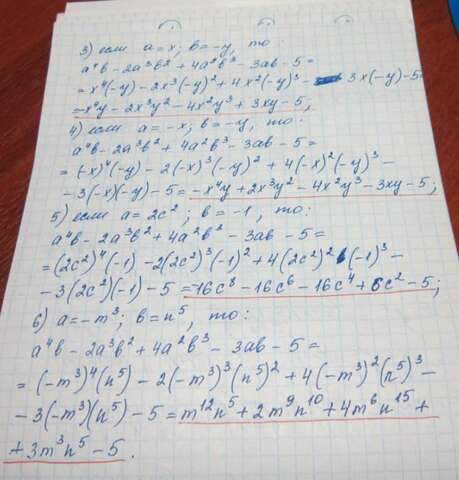 3) если a = x; b = -y, то:
a⁴b - 2a³b² + 4a²b³ - 3ab - 5 =
= x⁴(-y) - 2x³(-y)² + 4x²(-y)³ - 3x(-y) - 5
= -x⁴y - 2x³y² - 4x²y³ + 3xy - 5;
4) если a = -x; b = -y, то:
a⁴b - 2a³b² + 4a²b³ - 3ab - 5 =
= (-x)⁴(-y) - 2(-x)³(-y)² + 4(-x)²(-y)³ -
- 3(-x)(-y) - 5 = -x⁴y + 2x³y² - 4x²y³ - 3xy - 5;
5) если a = 2c²; b = -1, то:
a⁴b - 2a³b² + 4a²b³ - 3ab - 5 =
= (2c²)⁴(-1) - 2(2c²)³(-1)² + 4(2c²)²(-1)³ -
- 3(2c²)(-1) - 5 = -16c⁸ - 16c⁶ - 16c⁴ + 6c² - 5;
6) a = -m³; b = n⁵, то:
a⁴b - 2a³b² + 4a²b³ - 3ab - 5 =
= (-m³)⁴(n⁵) - 2(-m³)³(n⁵)² + 4(-m³)²(n⁵)³ -
- 3(-m³)(n⁵) - 5 = m¹²n⁵ + 2m⁹n¹⁰ + 4m⁶n¹⁵ +
+ 3m³n⁵ - 5.